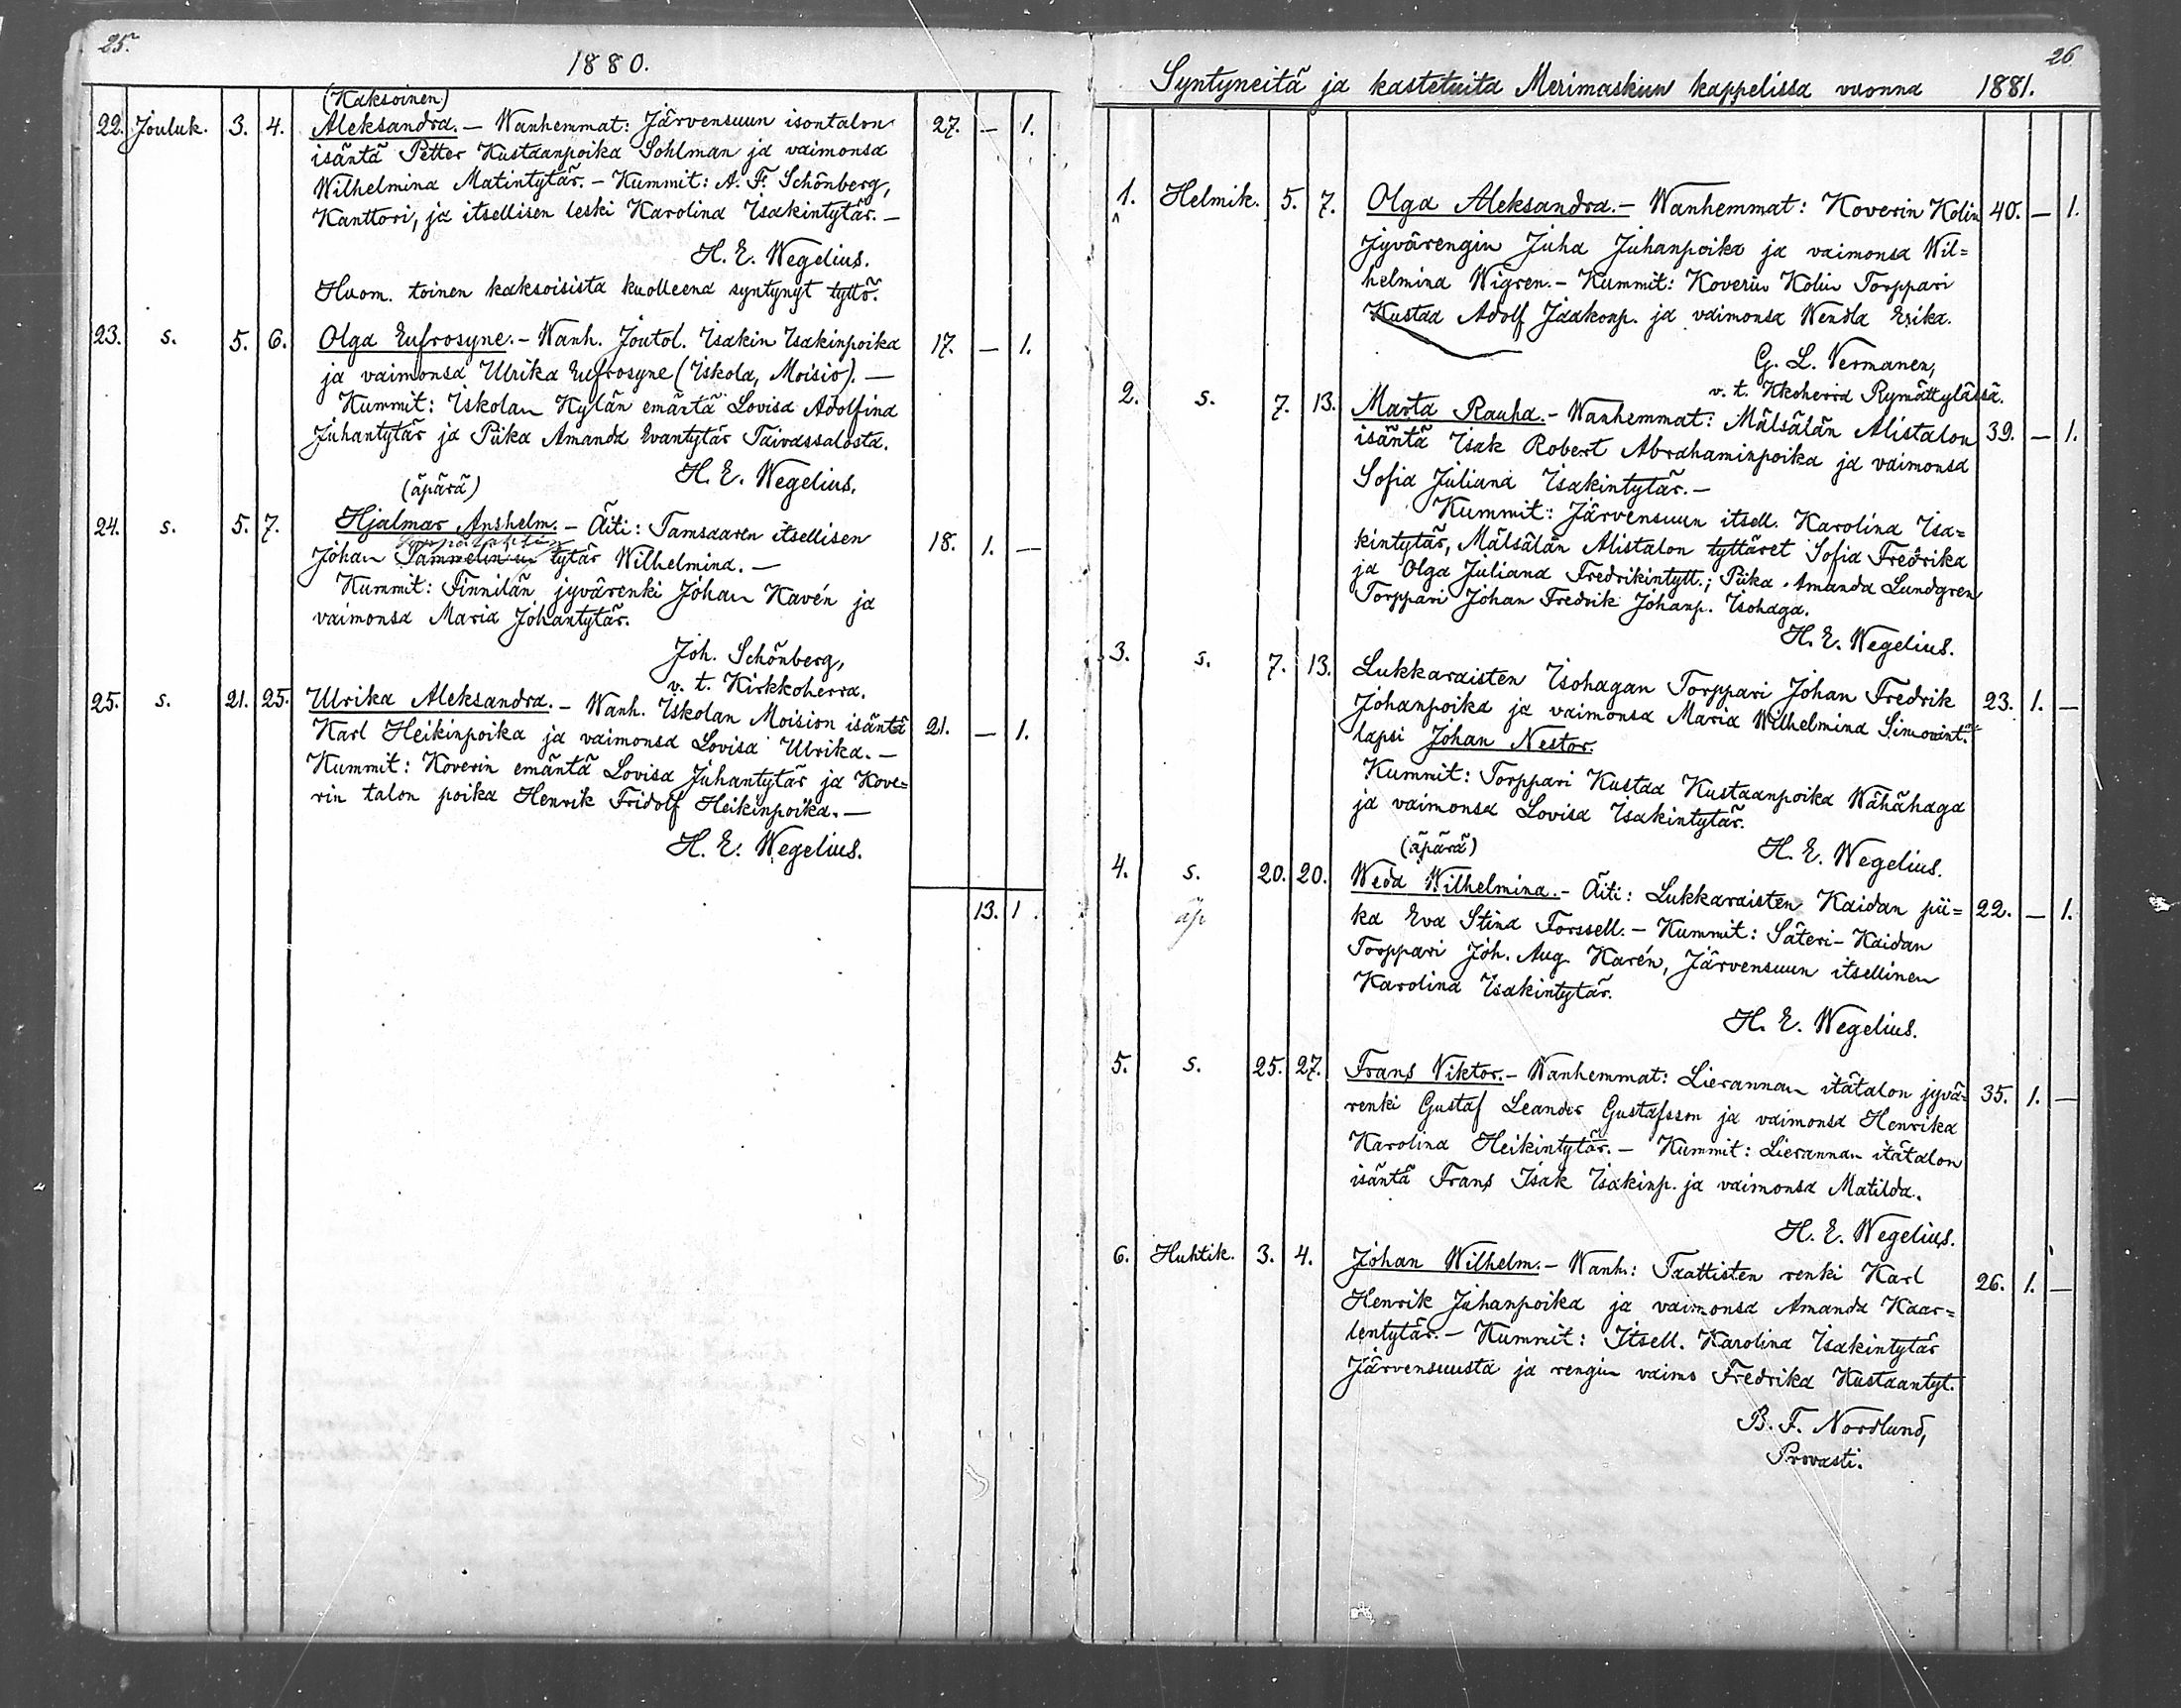 25.
1880.
(Kaksoinen)
22. Jouluk. 3. 4. Aleksandra. — Wanhemmat: Järvensuun isontalon 27. — 1.
isäntä Petter Kustaanpoika Sohlman ja vaimonsa
Wilhelmina Matintytär. — Kummit: A. F. Schönberg,
Kanttori, ja itsellisen leski Karolina Isakintytär. —
H. E. Wegelius.
Huom. toinen kaksoisista kuolleena syntynyt tyttö.
23. s. 5. 6. Olga Eufrosyne. — Wanh. Joutol. Isakin Isakinpoika 17. — 1.
ja vaimonsa Ulrika Eufrosyne (Iskola, Moisio). —
Kummit: Iskolan Kylän emäntä Lovisa Adolfina
Juhantytär ja Piika Amanda Evantytär Taivassalosta.
H. E. Wegelius.
(äpärä)
24. s. 5. 7. Hjalmar Anshelm. — Äiti: Tamsaaren itsellisen 18. 1. —
Johan Sammelinin tytär Wilhelmina. —
Kummit: Finnilän jyvärenki Johan Kavén ja
vaimonsa Maria Johantytär.
Joh. Schönberg,
v. t. Kirkkoherra.
25. s. 21. 25. Ulrika Aleksandra. — Wanh. Iskolan Moision isäntä 21. — 1.
Karl Heikinpoika ja vaimonsa Lovisa Ulrika. —
Kummit: Koverin emäntä Lovisa Juhantytär ja Kove=
rin talon poika Henrik Fridolf Heikinpoika. —
H. E. Wegelius.
13. 1.
26
Syntyneitä ja kastetuita Merimaskun kappelissa vuonna 1881.
1. Helmik. 5. 7. Olga Aleksandra. — Wanhemmat: Koverin Kolin 40. — 1.
Jyvärengin Juha Juhanpoika ja vaimonsa Wil=
helmina Wigren. — Kummit: Koverin Kolin Torppari
Kustaa Adolf Jaakonp. ja vaimonsa Wendla Erika.
G. L. Vermanen,
v. t. Kkoherra Rymättylässä.
2. s. 7. 13. Marta Rauha. — Wanhemmat: Mälsälän Alistalon 39. — 1.
isäntä Isak Robert Abrahaminpoika ja vaimonsa
Sofia Juliana Isakintytär. —
Kummit: Järvensuun itsell. Karolina Isa=
kintytär, Mälsälän Alistalon tyttäret Sofia Fredrika
ja Olga Juliana Fredrikintytt.; Piika Amanda Lundgren
Torppari Johan Fredrik Johanp. Isohaga.
H. E. Wegelius.
3. s. 7. 13. Lukkaraisten Isohagan Torppari Johan Fredrik 23. 1. —
Johanpoika ja vaimonsa Maria Wilhelmina Simonint:
lapsi Johan Nestor.
Kummit: Torppari Kustaa Kustaanpoika Wähähaga
ja vaimonsa Lovisa Isakintytär.
H. E. Wegelius.
(äpärä)
4. s. 20. 20. Weda Wilhelmina. — Äiti: Lukkaraisten Kaidan pii= 22. — 1.
äp ka Eva Stina Forssell. — Kummit: Säteri-Kaidan
Torppari Joh. Aug. Karén, Järvensuun itsellinen
Karolina Isakintytär.
H. E. Wegelius.
5. s. 25. 27. Frans Viktor. — Wanhemmat: Lierannan itätalon jyvä= 35. 1. —
renki Gustaf Leander Gustafsson ja vaimonsa Henrika
Karolina Heikintytär. — Kummit: Lierannan itätalon
isäntä Frans Isak Isakinp. ja vaimonsa Matilda.
H. E. Wegelius.
6. Huhtik. 3. 4. Johan Wilhelm. — Wanh.: Trattisten renki Karl 26. 1. —
Henrik Juhanpoika ja vaimonsa Amanda Kaar=
lentytär. — Kummit: Itsell. Karolina Isakintytär
Järvensuusta ja rengin vaimo Fredrika Kustaantyt.
B. F. Nordlund,
Provasti.